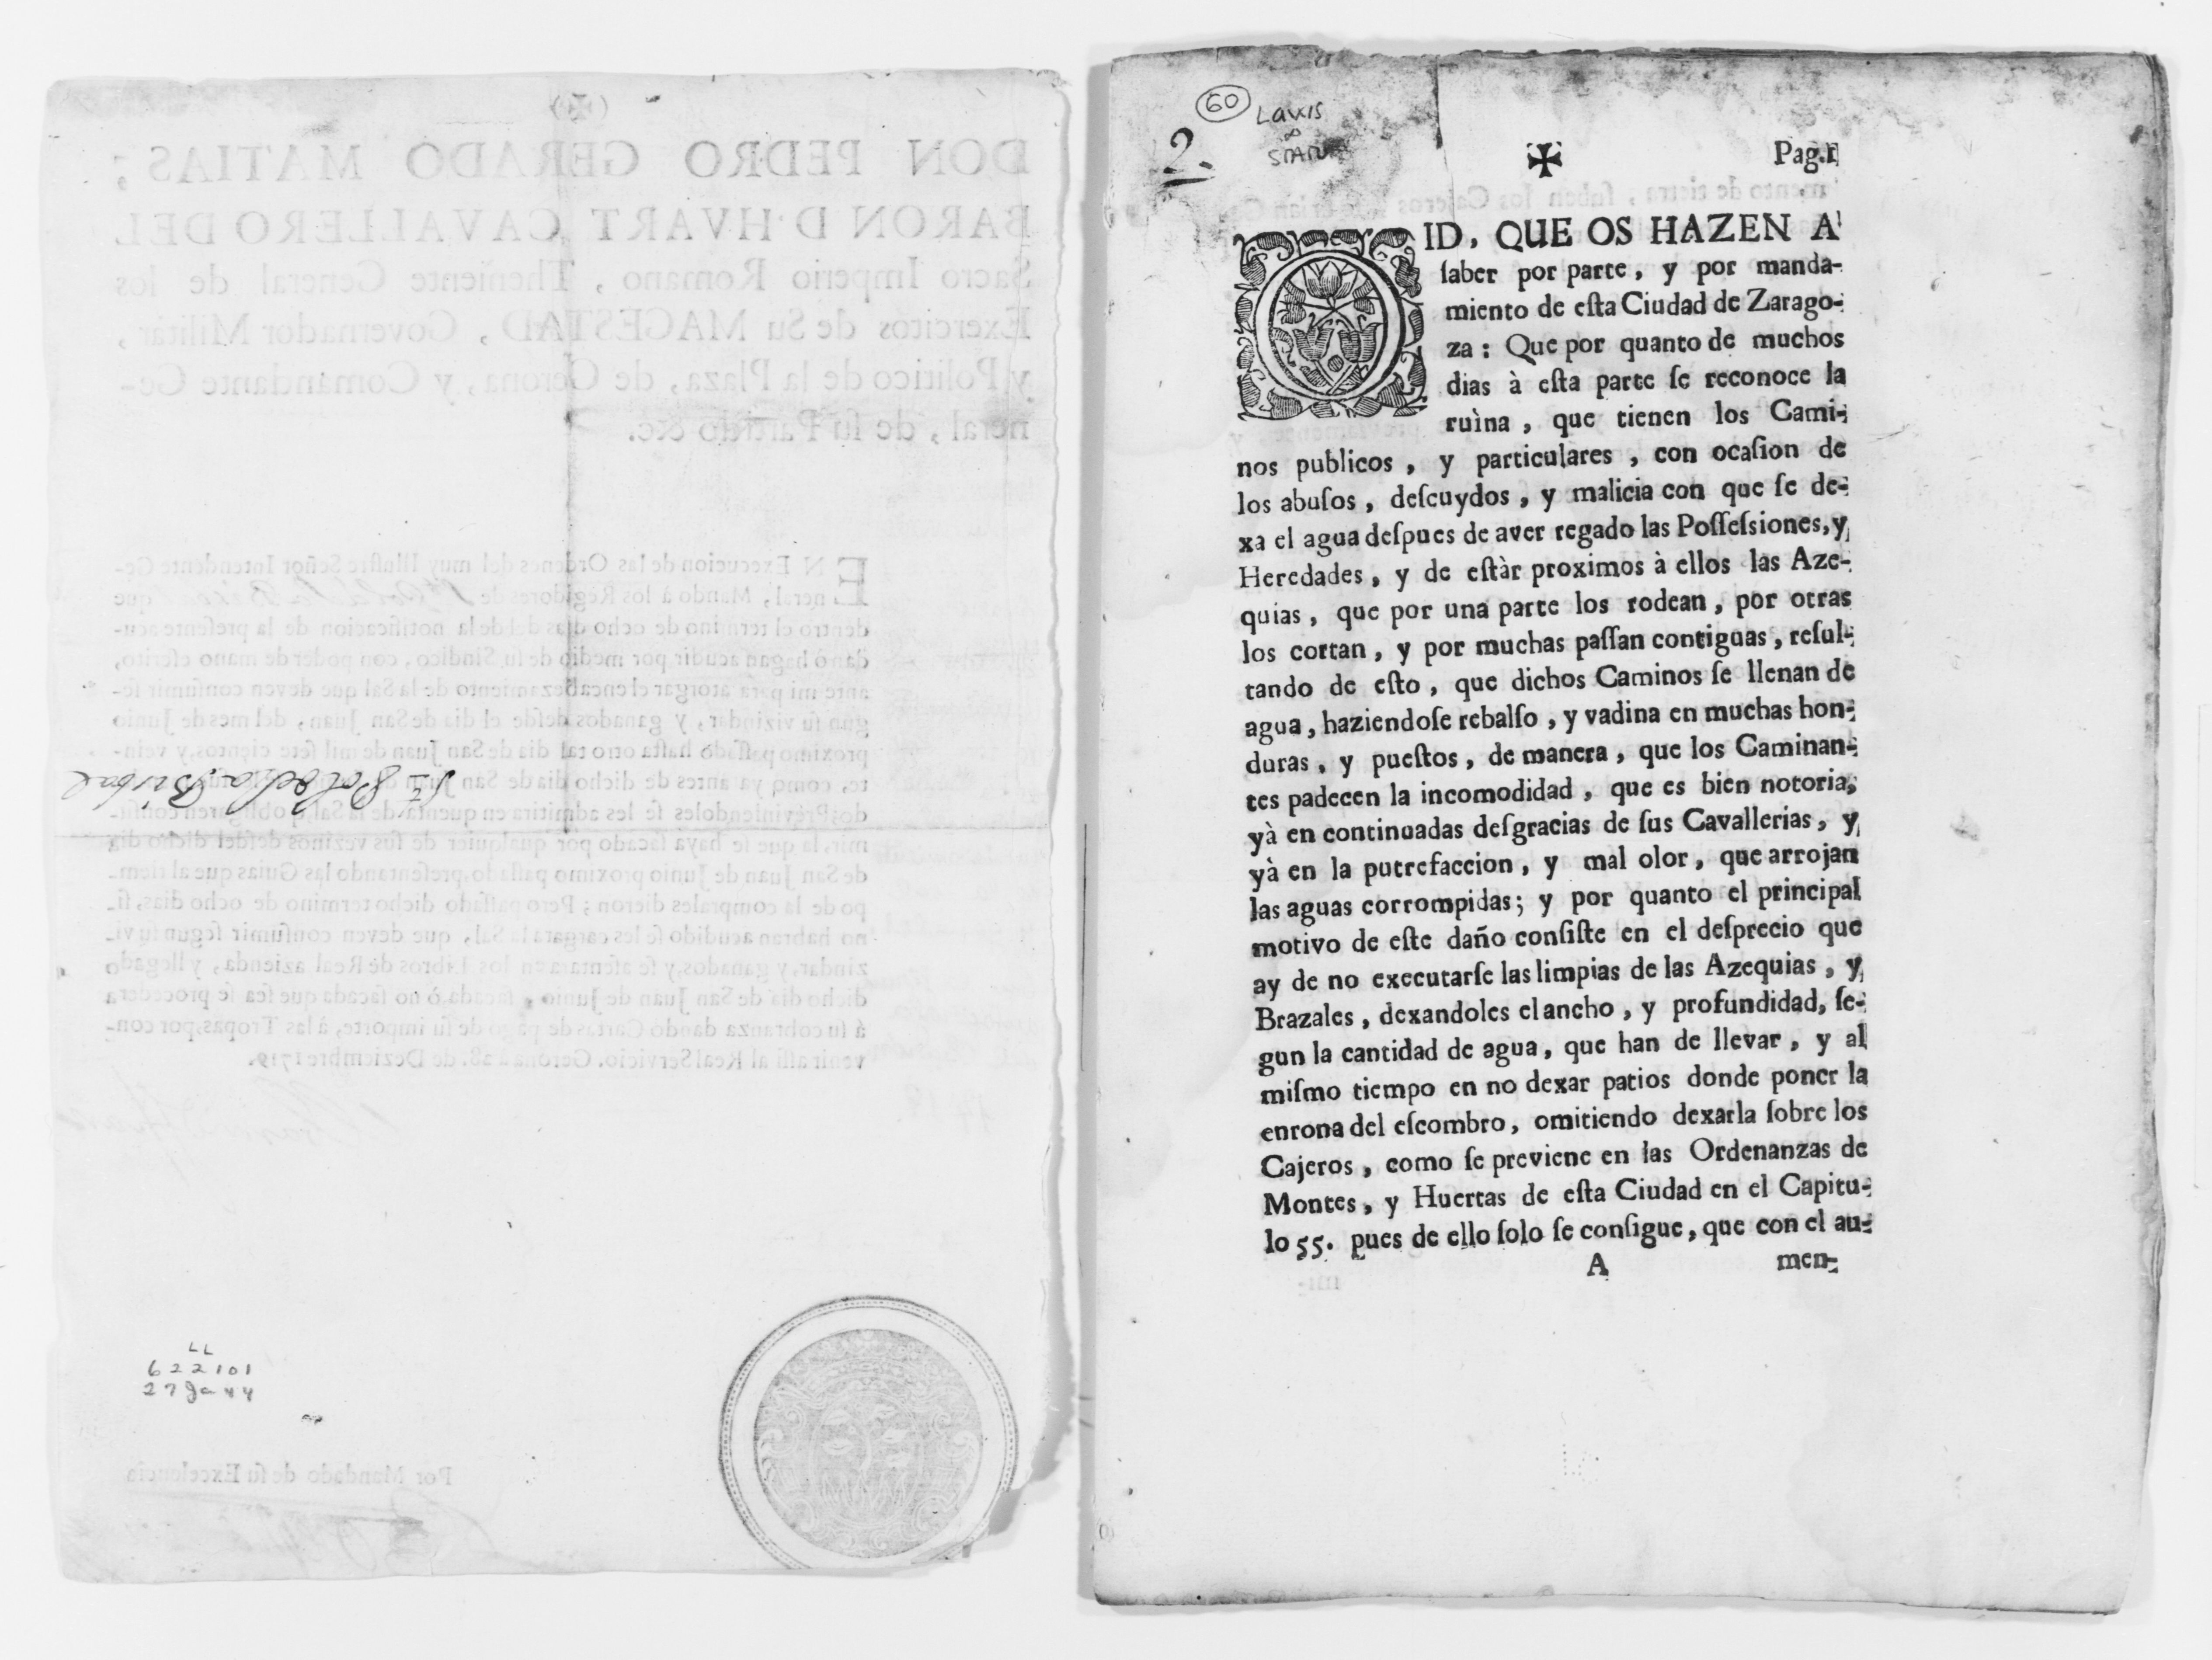 (✠)
DON PEDRO GERADO MATIAS;
BARON D'HVART CAVALLERO DEL
Sacro Imperio Romano, Theniente General de los
Exercitos de Su MAGESTAD, Governador Militár,
y Politico de la Plaza, de Gerona, y Comandante Ge-
neral, de ſu Partido &c.
EN Execucion de las Ordenes del muy Illuſtre Señor Intendente Ge-
neral, Mando à los Regidores de que
dentro el termino de ocho dias del dela notificacion de la preſente acu-
dan ò hagan acudir por medio de ſu Sindico, con poder de mano eſcrito,
ante mi para atorgar el encabezamiento de la Sal que deven conſumir ſe-
gun ſu vizindar, y ganados deſde el dia de San Juan, del mes de Junio
proximo paſſado haſta otro tal dia de San Juan de mil ſete cientos, y vein-
te, como ya antes de dicho dia de San Juan
do; Previniendoles ſe les admitira en quenta de la Sal,
mir, la que ſe haya ſacado por qualquier de ſus vezinos deſdel dicho dia
de San Juan de Junio proximo paſſado, preſentando las Guias que al tiem-
po de la comprales dieron; Pero paſſado dicho termino de ocho dias, ſi
no habran acudido ſe les cargara la Sal, que deven conſumir ſegun ſu vi-
zindar, y ganados, y ſe aſentara en los Libros de Real azienda, y llegado
dicho dia de San Juan de Junio, ſacada, ò no ſacada que ſea ſe procedera
á ſu cobranza dando Cartas de pago de ſu importe, à las Tropas, por con-
venir aſſi al Real Servicio. Gerona à 28. de Deziembre 1719.
LL
622101
27 Ja 44
Por Mandado de ſu Excelencia
60
LAWS
&
STATUTES
2.
✠ Pag.1
OID, QUE OS HAZEN A
ſaber por parte, y por manda-
miento de eſta Ciudad de Zarago-
za: Que por quanto de muchos
dias à eſta parte ſe reconoce la
ruìna, que tienen los Cami-
nos publicos, y particulares, con ocaſion de
los abuſos, deſcuydos, y malicia con que ſe de-
xa el agua deſpues de aver regado las Poſſeſsiones, y
Heredades, y de eſtàr proximos à ellos las Aze-
quias, que por una parte los rodean, por otras
los cortan, y por muchas paſſan contiguas, reſul-
tando de eſto, que dichos Caminos ſe llenan de
agua, haziendoſe rebalſo, y vadina en muchas hon-
duras, y pueſtos, de manera, que los Caminan-
tes padecen la incomodidad, que es bien notoria;
yà en continuadas deſgracias de ſus Cavallerias, y
yà en la putrefaccion, y mal olor, que arrojan
las aguas corrompidas; y por quanto el principal
motivo de eſte daño conſiſte en el deſprecio que
ay de no executarſe las limpias de las Azequias, y
Brazales, dexandoles el ancho, y profundidad, ſe-
gun la cantidad de agua, que han de llevar, y al
miſmo tiempo en no dexar patios donde poner la
enrona del eſcombro, omitiendo dexarla ſobre los
Cajeros, como ſe previene en las Ordenanzas de
Montes, y Huertas de eſta Ciudad en el Capitu-
lo 55. pues de ello ſolo ſe conſigue, que con el au-
A men-